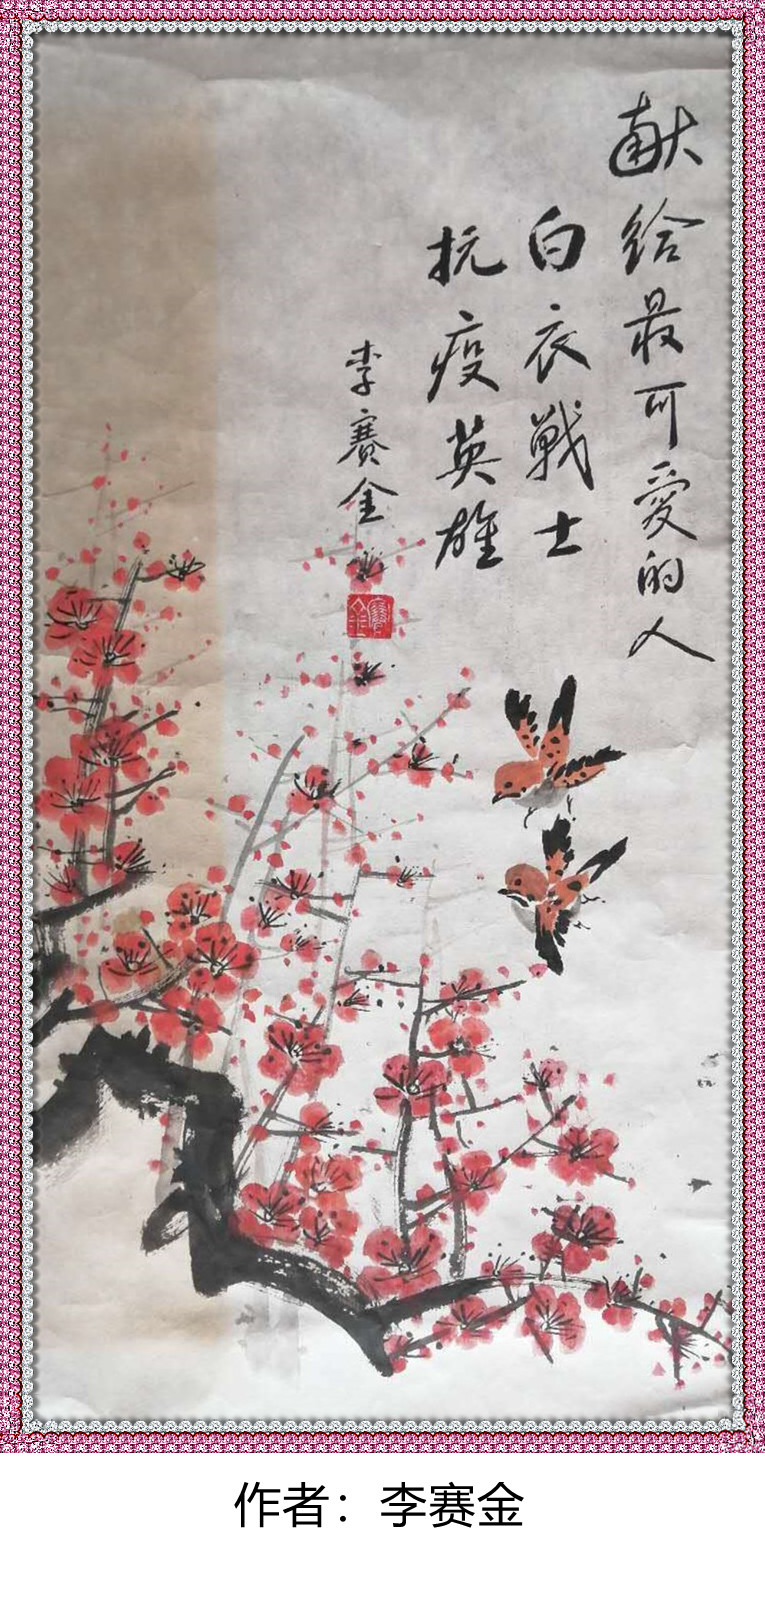 献给最可愛的人
白衣戰士
抗疫英雄
李赛金
作者：李赛金